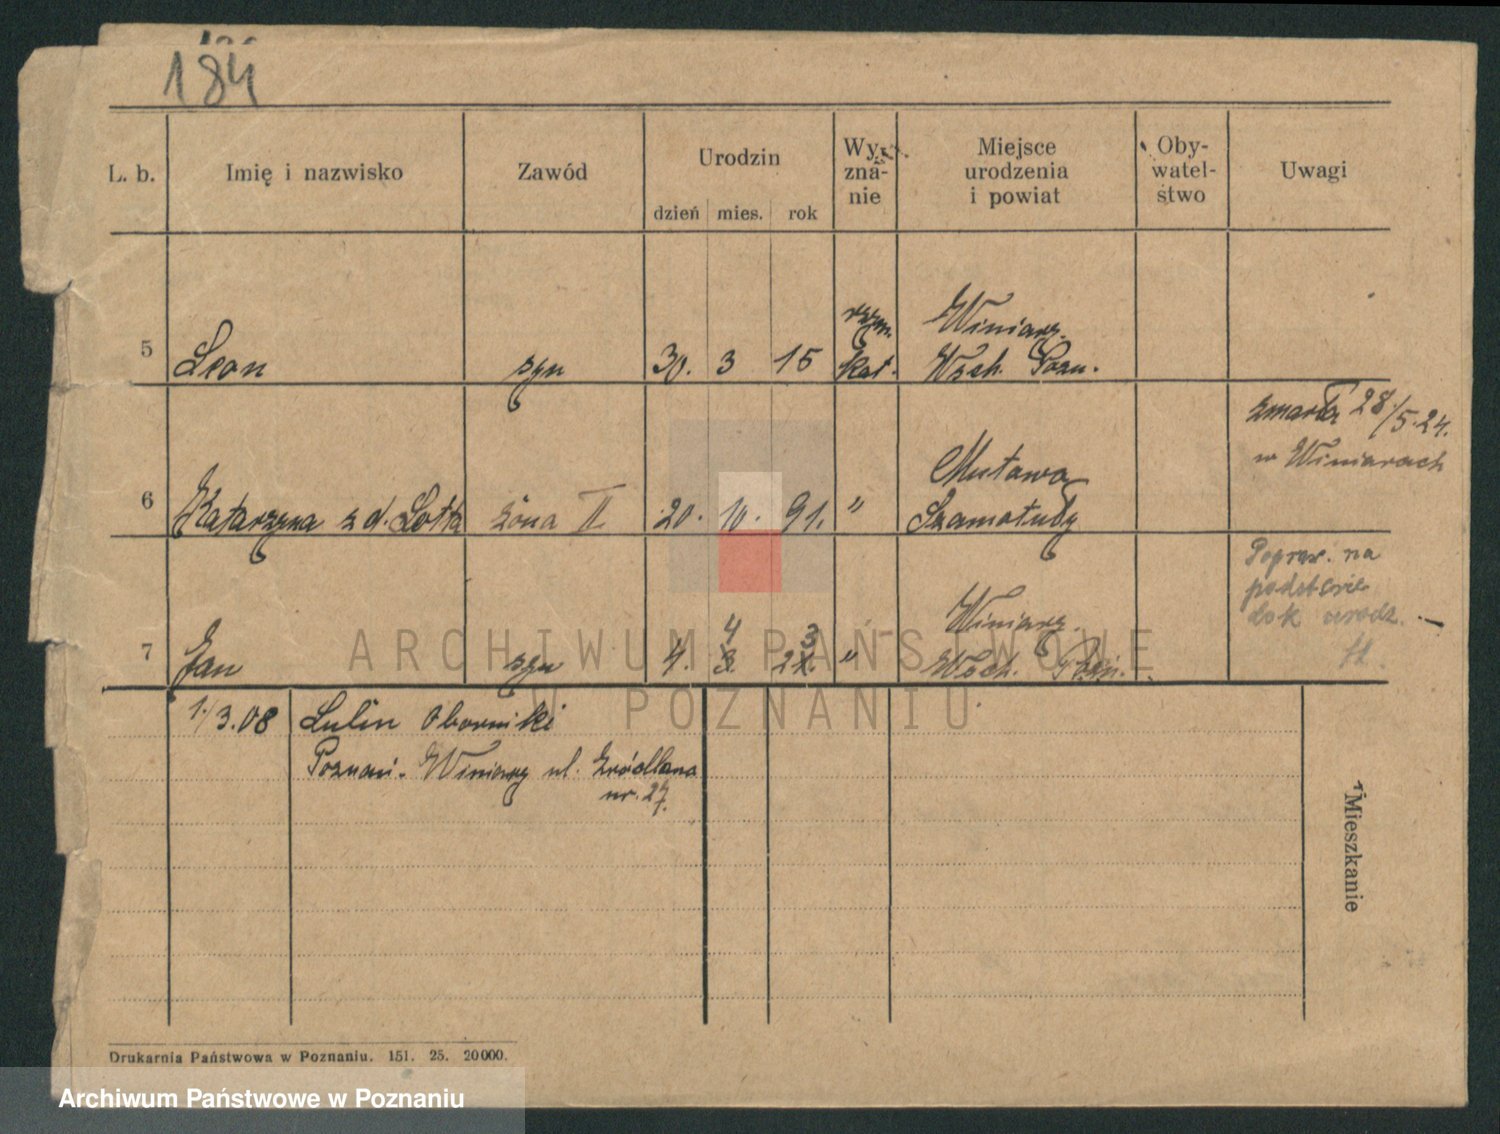 184
L. b. Imię i nazwisko Zawód Urodzin Wyznanie Miejsce urodzenia i powiat Obywatelstwo Uwagi
dzień mies. rok
5 Leon syn 30. 3 15 rzym. kat. Winiary. Wsch. Pozn.
6 Katarzyna z d. Lotka żona II 20. 10. 91. " Szamotuły
zmarła 28/5.24.
w Winiarach
7 Jan syn 4. 4 3 " Winiary. Wsch. Pozn.
Popraw. na
podstawie
dok urodz.
1./3.08 Lulin Oborniki
Poznań. Winiary ul. Źródlana
nr. 27.
Mieszkanie
Drukarnia Państwowa w Poznaniu. 151. 25. 20000.
ARCHIWUM PAŃSTWOWE
W POZNANIU
Archiwum Państwowe w Poznaniu